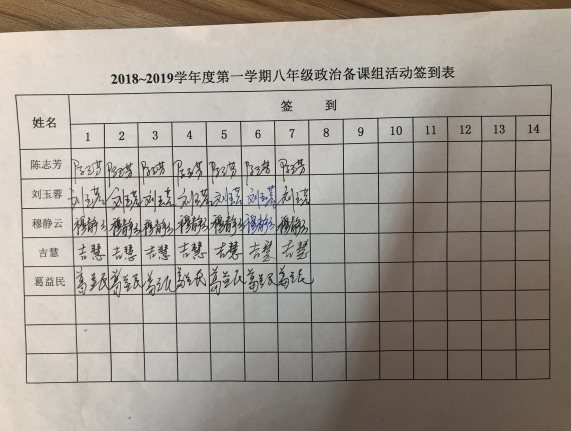 2018~2019学年度第一学期八年级政治备课组活动签到表
姓名 签 到
1 2 3 4 5 6 7 8 9 10 11 12 13 14
陈志芳
刘玉蓉 刘玉蓉 刘玉蓉 刘玉蓉 刘玉蓉 刘玉蓉 刘玉蓉 刘玉蓉
穆静云 穆静云 穆静云 穆静云 穆静云 穆静云 穆静云 穆静云
吉慧 吉慧 吉慧 吉慧 吉慧 吉慧 吉慧 吉慧
葛益民 葛益民 葛益民 葛益民 葛益民 葛益民 葛益民 葛益民